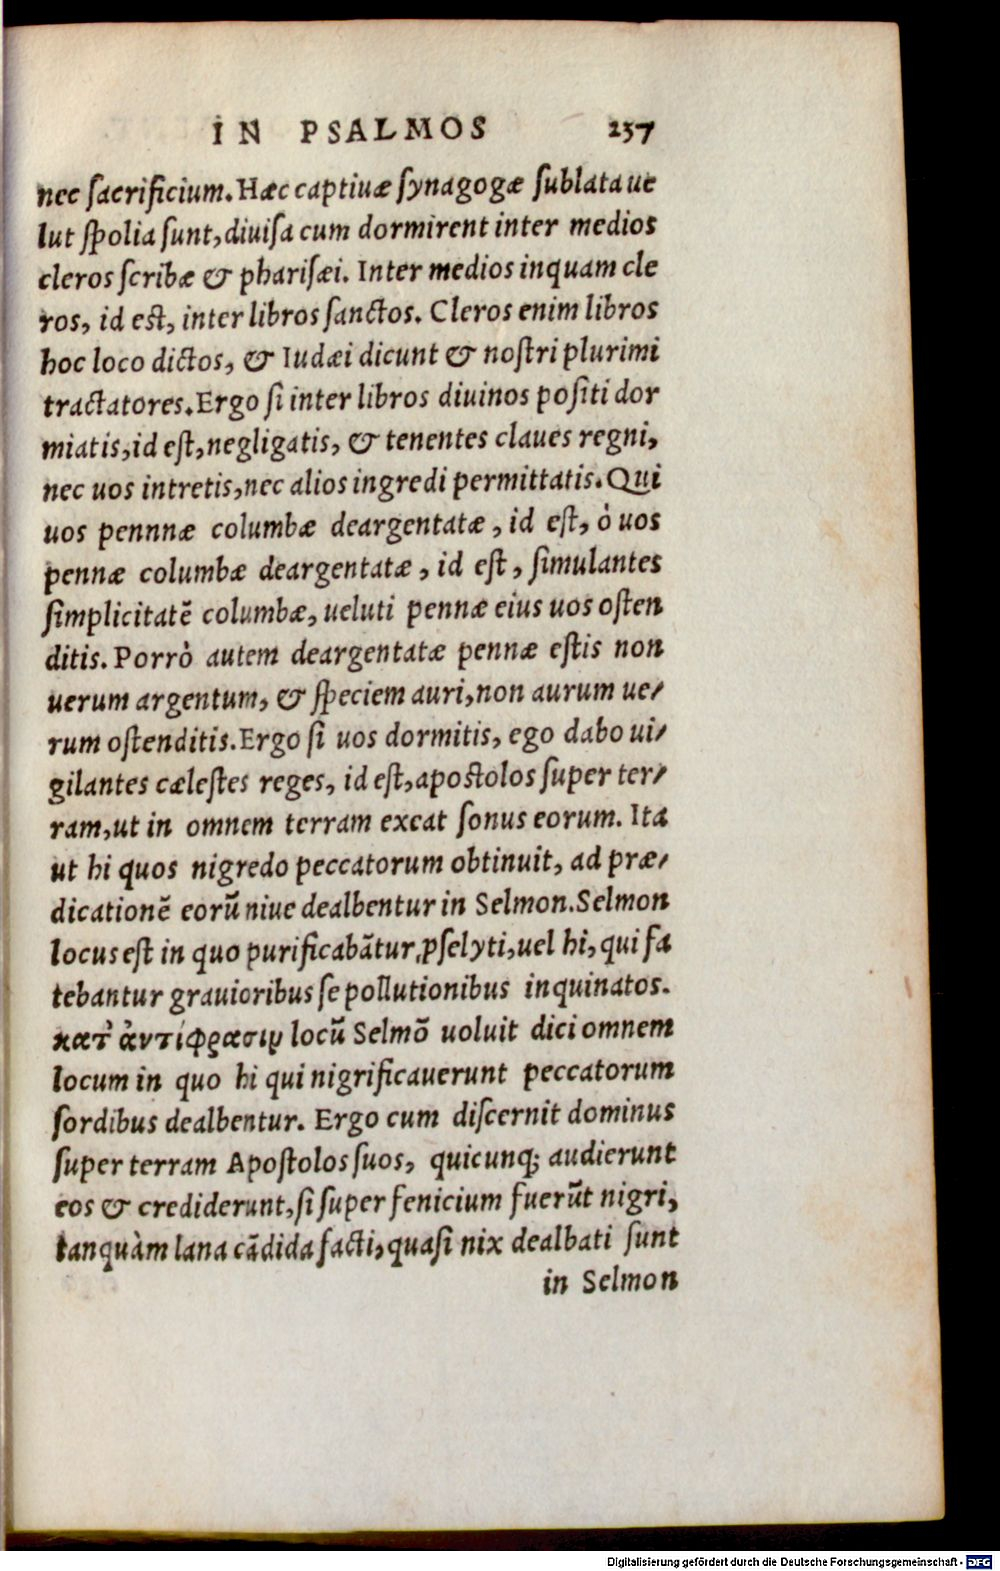 IN PSALMOS 237
nec sacrificium. Hæc captiuæ synagogæ sublata ue
lut spolia sunt, diuisa cum dormirent inter medios
cleros scribæ & pharisæi. Inter medios inquam cle
ros, id est, inter libros sanctos. Cleros enim libros
hoc loco dictos, & Iudæi dicunt & nostri plurimi
tractatores. Ergo si inter libros diuinos positi dor
miatis, id est, negligatis, & tenentes claues regni,
nec uos intretis, nec alios ingredi permittatis. Qui
uos pennnæ columbæ deargentatæ, id est, ò uos
pennæ columbæ deargentatæ, id est, simulantes
simplicitatē columbæ, ueluti pennæ eius uos osten
ditis. Porrò autem deargentatæ pennæ estis non
uerum argentum, & speciem auri, non aurum ue/
rum ostenditis. Ergo si uos dormitis, ego dabo ui/
gilantes cælestes reges, id est, apostolos super ter/
ram, ut in omnem terram exeat sonus eorum. Ita
ut hi quos nigredo peccatorum obtinuit, ad præ/
dicationē eorū niue dealbentur in Selmon. Selmon
locus est in quo purificabātur ꝓselyti, uel hi, qui fa
tebantur grauioribus se pollutionibus inquinatos.
κατ᾽ ἀντίφρασιν locū Selmō uoluit dici omnem
locum in quo hi qui nigrificauerunt peccatorum
sordibus dealbentur. Ergo cum discernit dominus
super terram Apostolos suos, quicunq; audierunt
eos & crediderunt, si super fenicium fuerūt nigri,
tanquàm lana cādida facti, quasi nix dealbati sunt
in Selmon
Digitalisierung gefördert durch die Deutsche Forschungsgemeinschaft - DFG